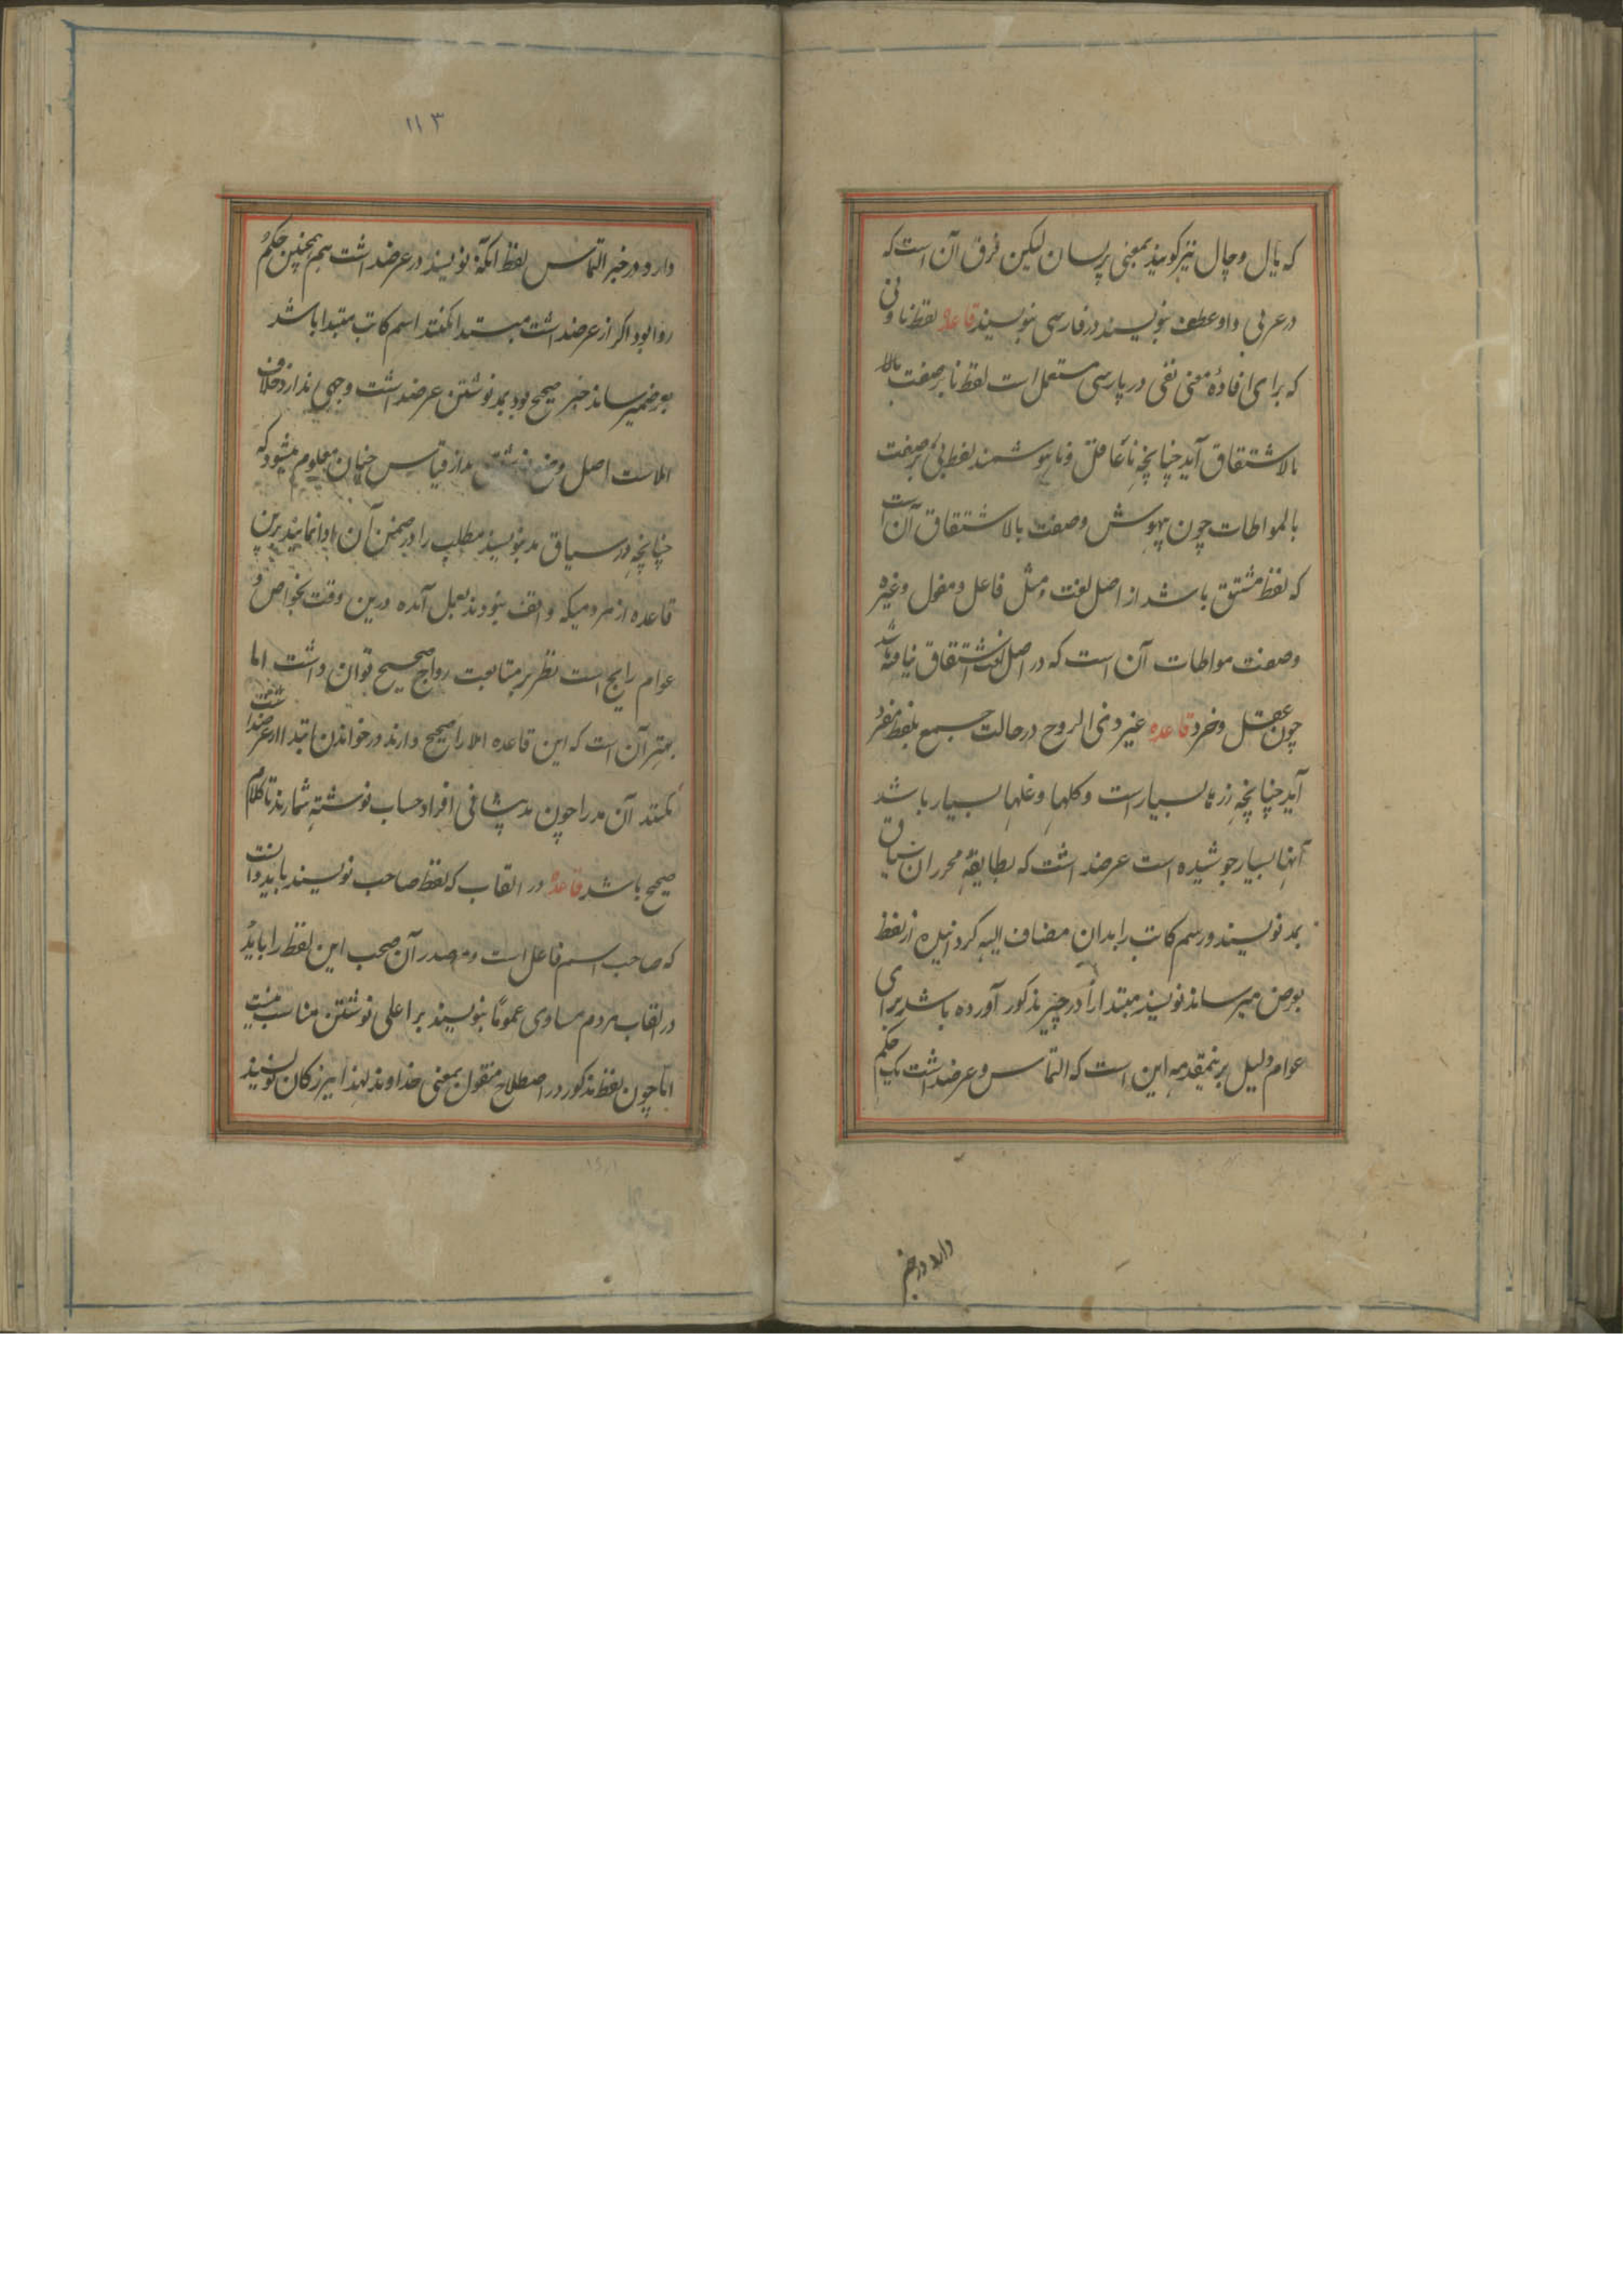 که یال و چال نیز گویند بمعنی پرسان لیکن فرق آن است که
در عربی واو عطف بنویسند در فارسی ننویسند قاعده لفظ نا و بی
که برای افادهٔ معنی نفی در پارسی مستعمل است لفظ نا بر صفت بالا
بالاشتقاق آید چنانچه ناعاقل و ناهوشمند لفظ بی بر صفت
بالمواطات چون بیهوش وصفت بالاشتقاق آن است
که لفظ مشتق باشد از اصل لغت مثل فاعل و مفعول و غیره
وصفت مواطات آن است که در اصل لغت اشتقاق نیافته باشد
چون عقل و خرد قاعده غیر ذی الروح در حالت جمع بلفظ مفرد
آید چنانچه زرها بسیار است و گلها و غلها بسیار باشد
آبها بسیار جوشیده است عرضداشت که بطایفهٔ محرران سیاق
بمد نویسند و رسم کاتب را بدان مضاف الیه گردانیده از لفظ
بعرض میرساند نویسند مبتدا را در خبر مذکور آورده باشد برای
عوام دلیل برینمقدمه این است که التماس و عرضداشت یک حکم
دارد و در خبر
۱۱۳
دارد و در خبر التماس لفظ آنکه نویسند در عرضداشت هم همچنین حکم
روا بود اگر از عرضداشت مبتدا کنند اسم کاتب مبتدا باشد
بعرض میرساند خبر صحیح بود بمد نوشتن عرضداشت وجهی ندارد خلاف
املاست اصل وضع نوشتن مد از قیاس چنان معلوم میشود که
چنانچه در سیاق مد بنویسند مطلب را در ضمن آن ادا نمایند برین
قاعده از مردمیکه واقف نبودند بعمل آمده درین وقت بخواص و
عوام رایج است نظر بر متابعت رواج صحیح توان داشت اما
بهتر آن است که این قاعده املا را صحیح دارند در خواندن ابتدا از عرضداشت
نکنند آن مد را چون مد پیشانی افراد حساب نوشته شمارند تا کلام
صحیح باشد قاعده در القاب که لفظ صاحب نویسند باید دانست
که صاحب اسم فاعل است و مصدر آن صحب این لفظ را باید
در القاب مردم مساوی عموماً بنویسند بر اعلی نوشتن مناسب نیست
اما چون لفظ مذکور در اصطلاح منقول بمعنی خداوند لهذا بزرگان نویسند